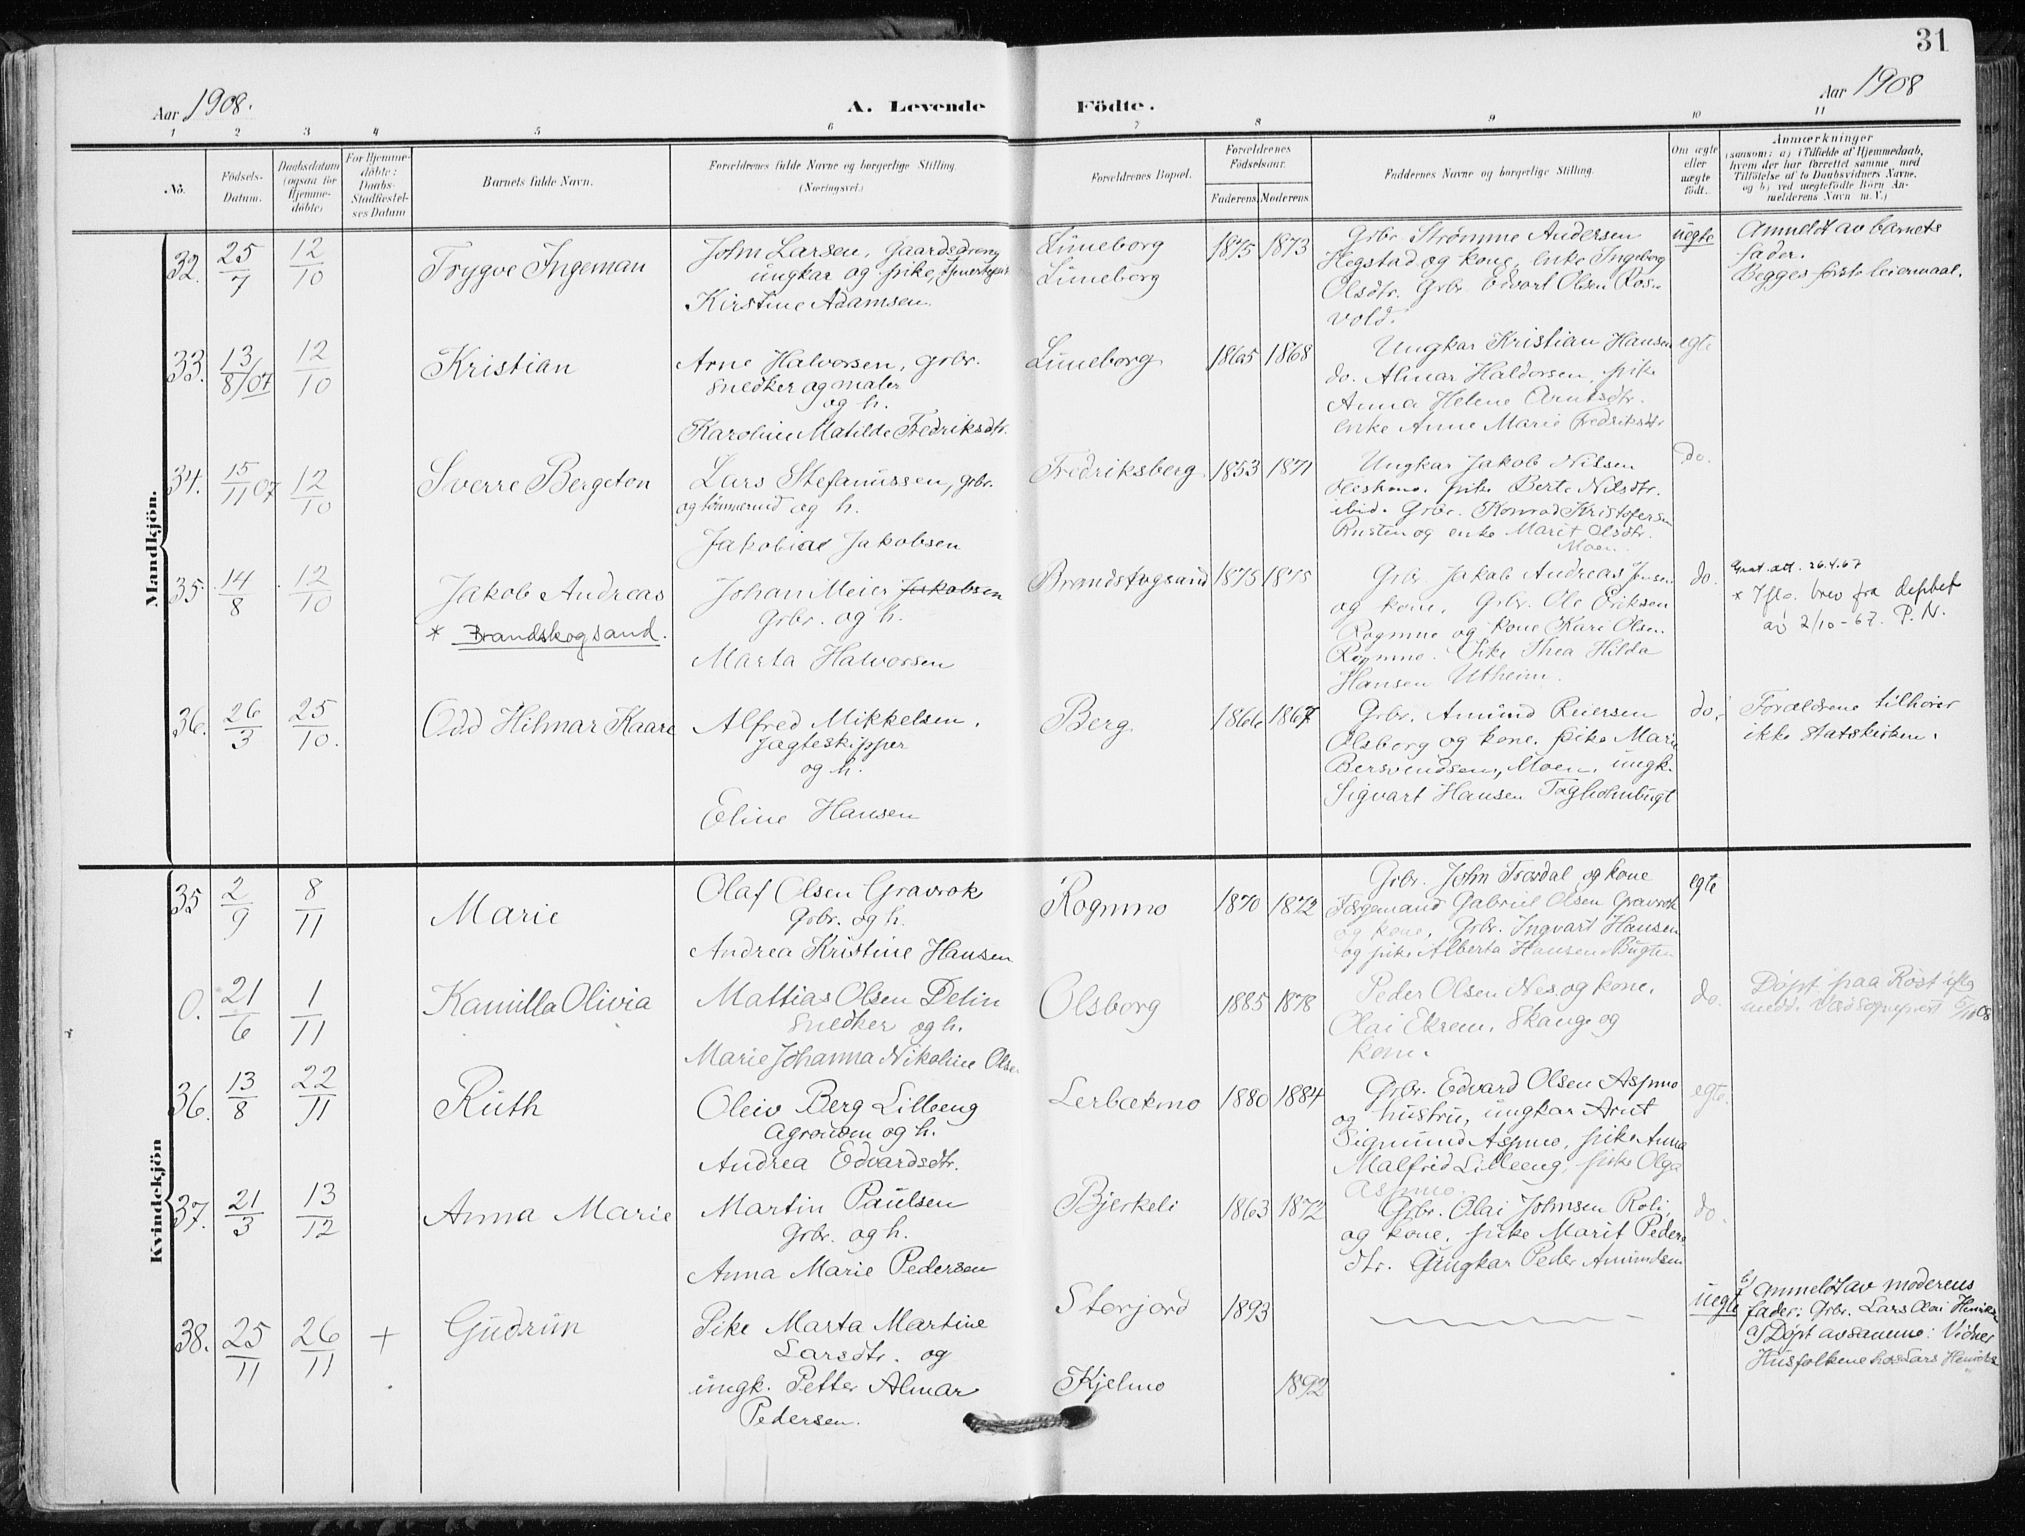 31
Aar 1908.
A. Levende Födte.
Aar 1908
1 2 3 4 5 6 7 8 9 10 11
No.
Födsels-Datum.
Daabsdatum (ogsaa for Hjemme-döbte)
For Hjemme-döbte: Daabs-Stadfæstel-ses Datum
Barnets fulde Navn.
Forældrenes fulde Navne og borgerlige Stilling. (Næringsvei.)
Forældrenes Bopæl.
Forældrenes Födselsaar.
Faderens Moderens
Faddernes Navne og borgerlige Stilling.
Om ægte eller uægte födt.
Anmærkninger
(saasom: a) i Tilfælde af Hjemmedaab,
hvem der har forrettet samme, med
Tilföielse af to Daabsvidners Navne,
og b) ved uægtefödte Börn An-
melderens Navn m.V.)
Mandkjön.
32. 25/7 12/10 Trygve Ingeman
John Larsen, Gaardsdreng
ungkar og pike,
Kirstine Adamsen.
Luneborg
Luneborg
1875 1873
Grbr. Strømme Andersen
Hegstad og kone, enke Ingeborg
Olsdtr. Grbr. Edvart Olsen Ros-
vold.
uegte
Anmeldt av barnets
fader.
Begges første leiermaal.
33. 13/8/07 12/10 Kristian
Arne Halvorsen, grbr.
snedker og maler
og h.
Karoline Matilde Fredriksdtr.
Luneborg
1865 1868
Ungkar Kristian Hansen
do. Almar Haldorsen, pike
Anna Helene Arntsdtr.
enke Anne Marie Fredriksdtr.
egte
34. 15/11 07 12/10 Sverre Bergeton
Lars Stefanussen, grbr.
og tømmermd og h.
Jakobine Jakobsen
Fredriksberg
1853 1871
Ungkar Jakob Nilsen
pike Berte Nilsdtr.
ibid. Grbr. Konrad Kristofersen
Rusten og enke Marit Olsdtr.
Moen.
do.
35. 14/8 12/10 Jakob Andreas
* Brandskogsand.
Johan Meier Jakobsen
Grbr. og h.
Marta Halvorsen
Brandskogsand
1875 1875
Grbr. Jakob Andreas Jensen
og kone, Grbr. Ole Eriksen
Rognmo og kone Kari Olsen
Rognmo. Pike Thea Hilda
Hansen Utheim.
do.
Grat. att. 26.4.67
* Iflg. brev fra deptet
av 2/10-67. P.N.
36. 26/3 25/10. Odd Hilmar Kaare
Alfred Mikkelsen,
Jægteskipper
og h.
Eline Hansen
Berg
1866 1867
Grbr. Amund Reiersen
Olsborg og kone. pike Marie
Bersvendsen, Moen, ungk.
Sigvart Hansen
do.
Forældrene tilhører
ikke statskirken.
Kvindekjön
35 2/9 8/11 Marie
Olaf Olsen Gravrok
Grbr. og h.
Andrea Kristine Hansen
Rognmo
1870 1872
Grbr. John Fosdal og kone
Forgemand Gabriel Olsen Gravrok
og kone, Grbr. Ingvart Hansen
og pike Alberta Hansen Bugten
egte
0. 21/6 1/11 Kamilla Olivia
Mattias Olsen Delin
snedker og h.
Marie Johanna Nikoline Olsen
Olsborg
1885 1878
Peder Olsen Nes og kone,
Olai Ekrem, Skange og
kone.
do.
Døpt paa Røst iflg
medd. 08
36. 13/8 22/11 Ruth
Oleiv Berg Lilleeng
Agronom og h.
Andrea Edvardsdtr.
Lerbækmo
1880 1884
Grbr. Edvard Olsen Aspmo
og hustru, ungkar Arnt
Sigmund Aspmo, pike Anna
Malfrid Lilleeng, pike Olga
Aspmo.
egte.
37. 21/3 13/12 Anna Marie
Martin Paulsen
Grbr. og h.
Anna Marie Pedersen
Bjerkeli
1863 1872
Grbr. Olai Johnsen Roli,
og kone, pike Marit Peders
dtr. Ungkar Peder Amundsen
do.
38. 25/11 26/11 + Gudrun
Pike Marta Martine
Larsdtr. og
ungk. Petter Almar
Pedersen.
Storjord
Kjelmo
1893
1892
uegte
b) Anmeldt av moderens
fader: Grbr. Lars Olai
a) Døpt av samme: Vidner
Husfolkene hos Lars